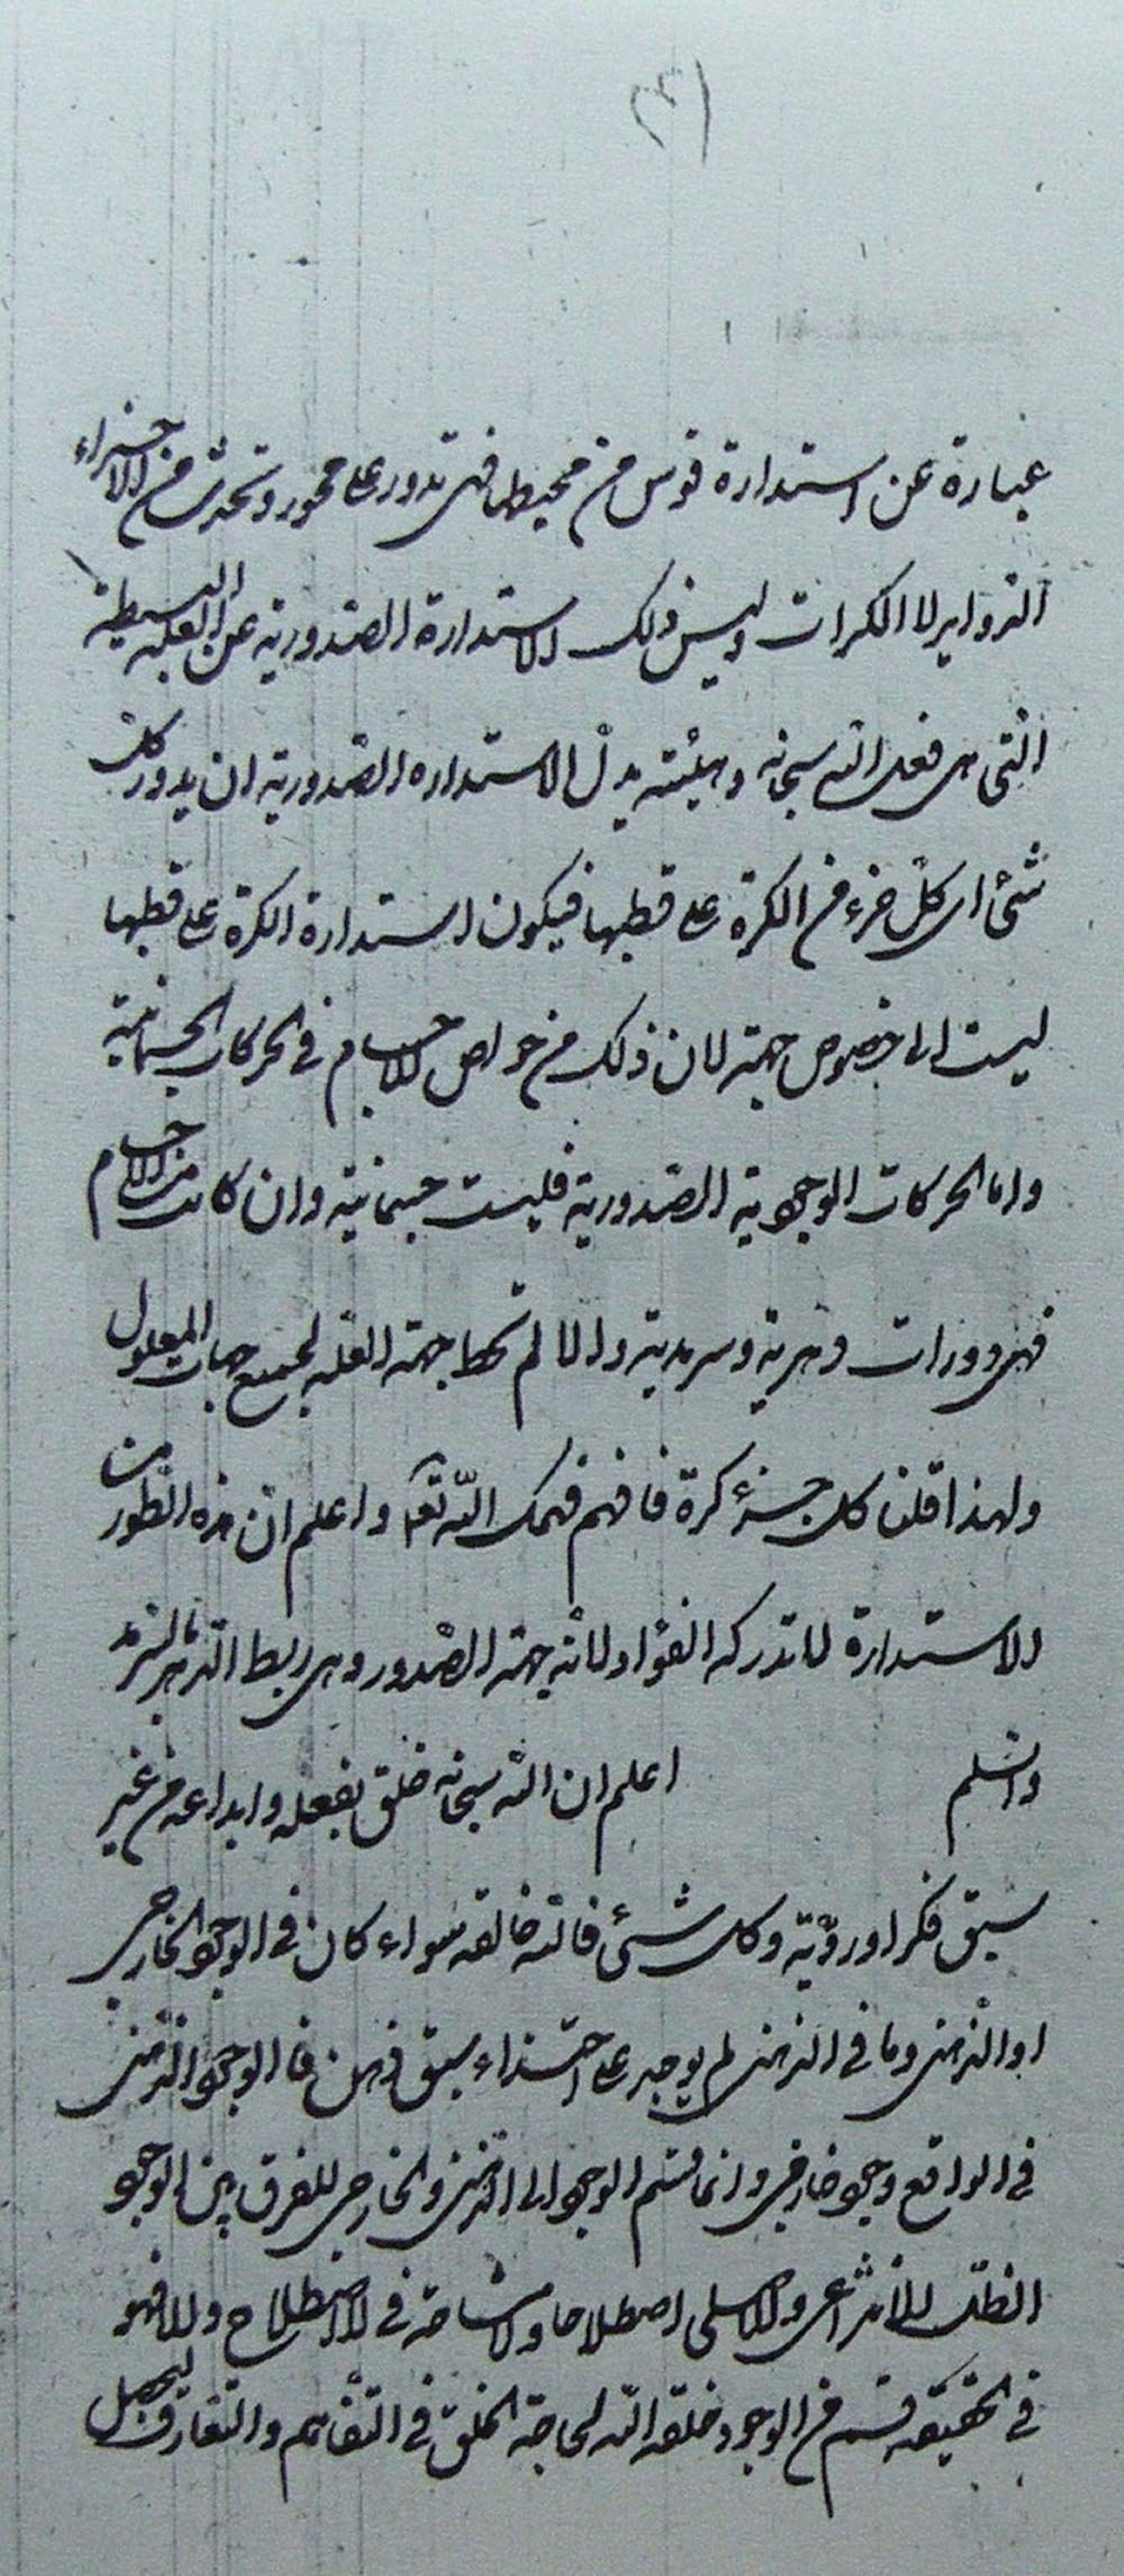 (٣)
عبارة عن استدارة قوس من محيطها فهى تدور على محور وتحدث من الاجزاء
الدواير لا الكرات وليس ذلك الاستدارة الصدورية عن العلة البسيطة
التى هى فعل الله سبحانه وهيئته بل الاستداره الصدورية ان يدور كل
شئ اى كل جزء من الكرة على قطبها فيكون استدارة الكرة على قطبها
ليست الى خصوص جهة لان ذلك من خواص الاجسام فى الحركات الجسمانية
واما الحركات الوجودية الصدورية فليست جسمانية وان كانت من الاجسام
فهى دورات دهرية وسرمدية والا لم تكن جهة العلة لجميع جهات المعلول
ولهذا قلنا كل جزء كرة فافهم فهمك الله تعالى واعلم ان هذه الطور من
الاستدارة لا تدركه الفؤاد لانه جهة الصدور وهى ربط الدهر بالسرمد
والسلم اعلم ان الله سبحانه خلق بفعله وابداعه من غير
سبق فكر اور وّية وكل شئ فالله خالقه سواء كان فى الوجود الخارجى
او الذهنى وما فى الذهن لم يوجد على احتذاء سبق ذهن فالوجود الذهنى
فى الواقع وجود خارجى وانما قسم الوجود الى الذهنى والخارجى للفرق بين الوجود
الظلى الانتزاعى والاصلى اصطلاحا ولا مشاحة فى الاصطلاح والا فهو
فى الحقيقة قسم من الوجود خلقه الله لحاجة الخلق فى التفاهم والتعارف ليحصل